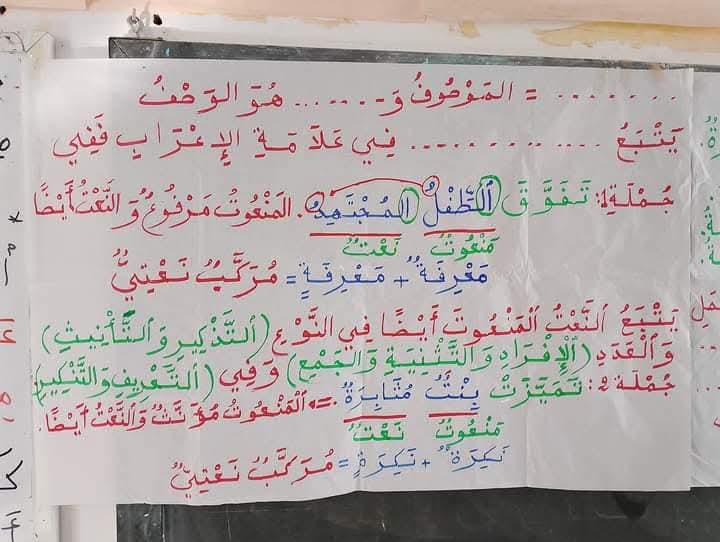 ........ = المَوْصُوفُ وَ....... هُوَ الوَصْفُ
يَتْبَعُ .............. فِي عَلَامَةِ الإِعْرَابِ فَفِي
جُمْلَة1: تَفَوَّقَ الطِّفْلُ المُجْتَهِدُ. المَنْعُوتُ مَرْفُوعٌ وَالنَّعْتُ أَيْضًا
مَنْعُوتٌ نَعْتٌ
مَعْرِفَةٌ + مَعْرِفَةٍ = مُرَكَّبٌ نَعْتِيٌّ
يَتْبَعُ النَّعْتُ المَنْعُوتَ أَيْضًا فِي النَّوْعِ (التَّذْكِيرِ وَالتَّأْنِيثِ)
وَالعَدَدِ (الْإِفْرَادِ وَالتَّثْنِيَةِ وَالجَمْعِ) وَفِي (التَّعْرِيفِ وَالتَّنْكِيرِ)
جُمْلَة2: تَمَيَّزَتْ بِنْتٌ مُثَابِرَةٌ. => المَنْعُوتُ مُؤَنَّثٌ وَالنَّعْتُ أَيْضًا.
مَنْعُوتٌ نَعْتٌ
نَكِرَةٌ + نَكِرَةٍ = مُرَكَّبٌ نَعْتِيٌّ